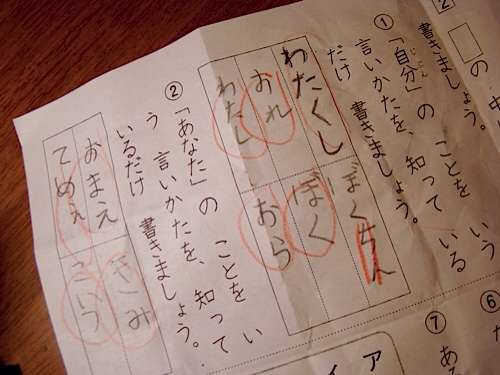 2
□の中
書きましょう。
① 「自分」のことをいう
じぶん
言いかたを、知っている
だけ 書きましょう。
わたくし ぼくちん
おれ ぼく
わたし おら
② 「あなた」のことをい
う 言いかたを、知って
いるだけ 書きましょう。
おまえ きみ
てめぇ こいつ
⑥
⑦
ある
ア
イ